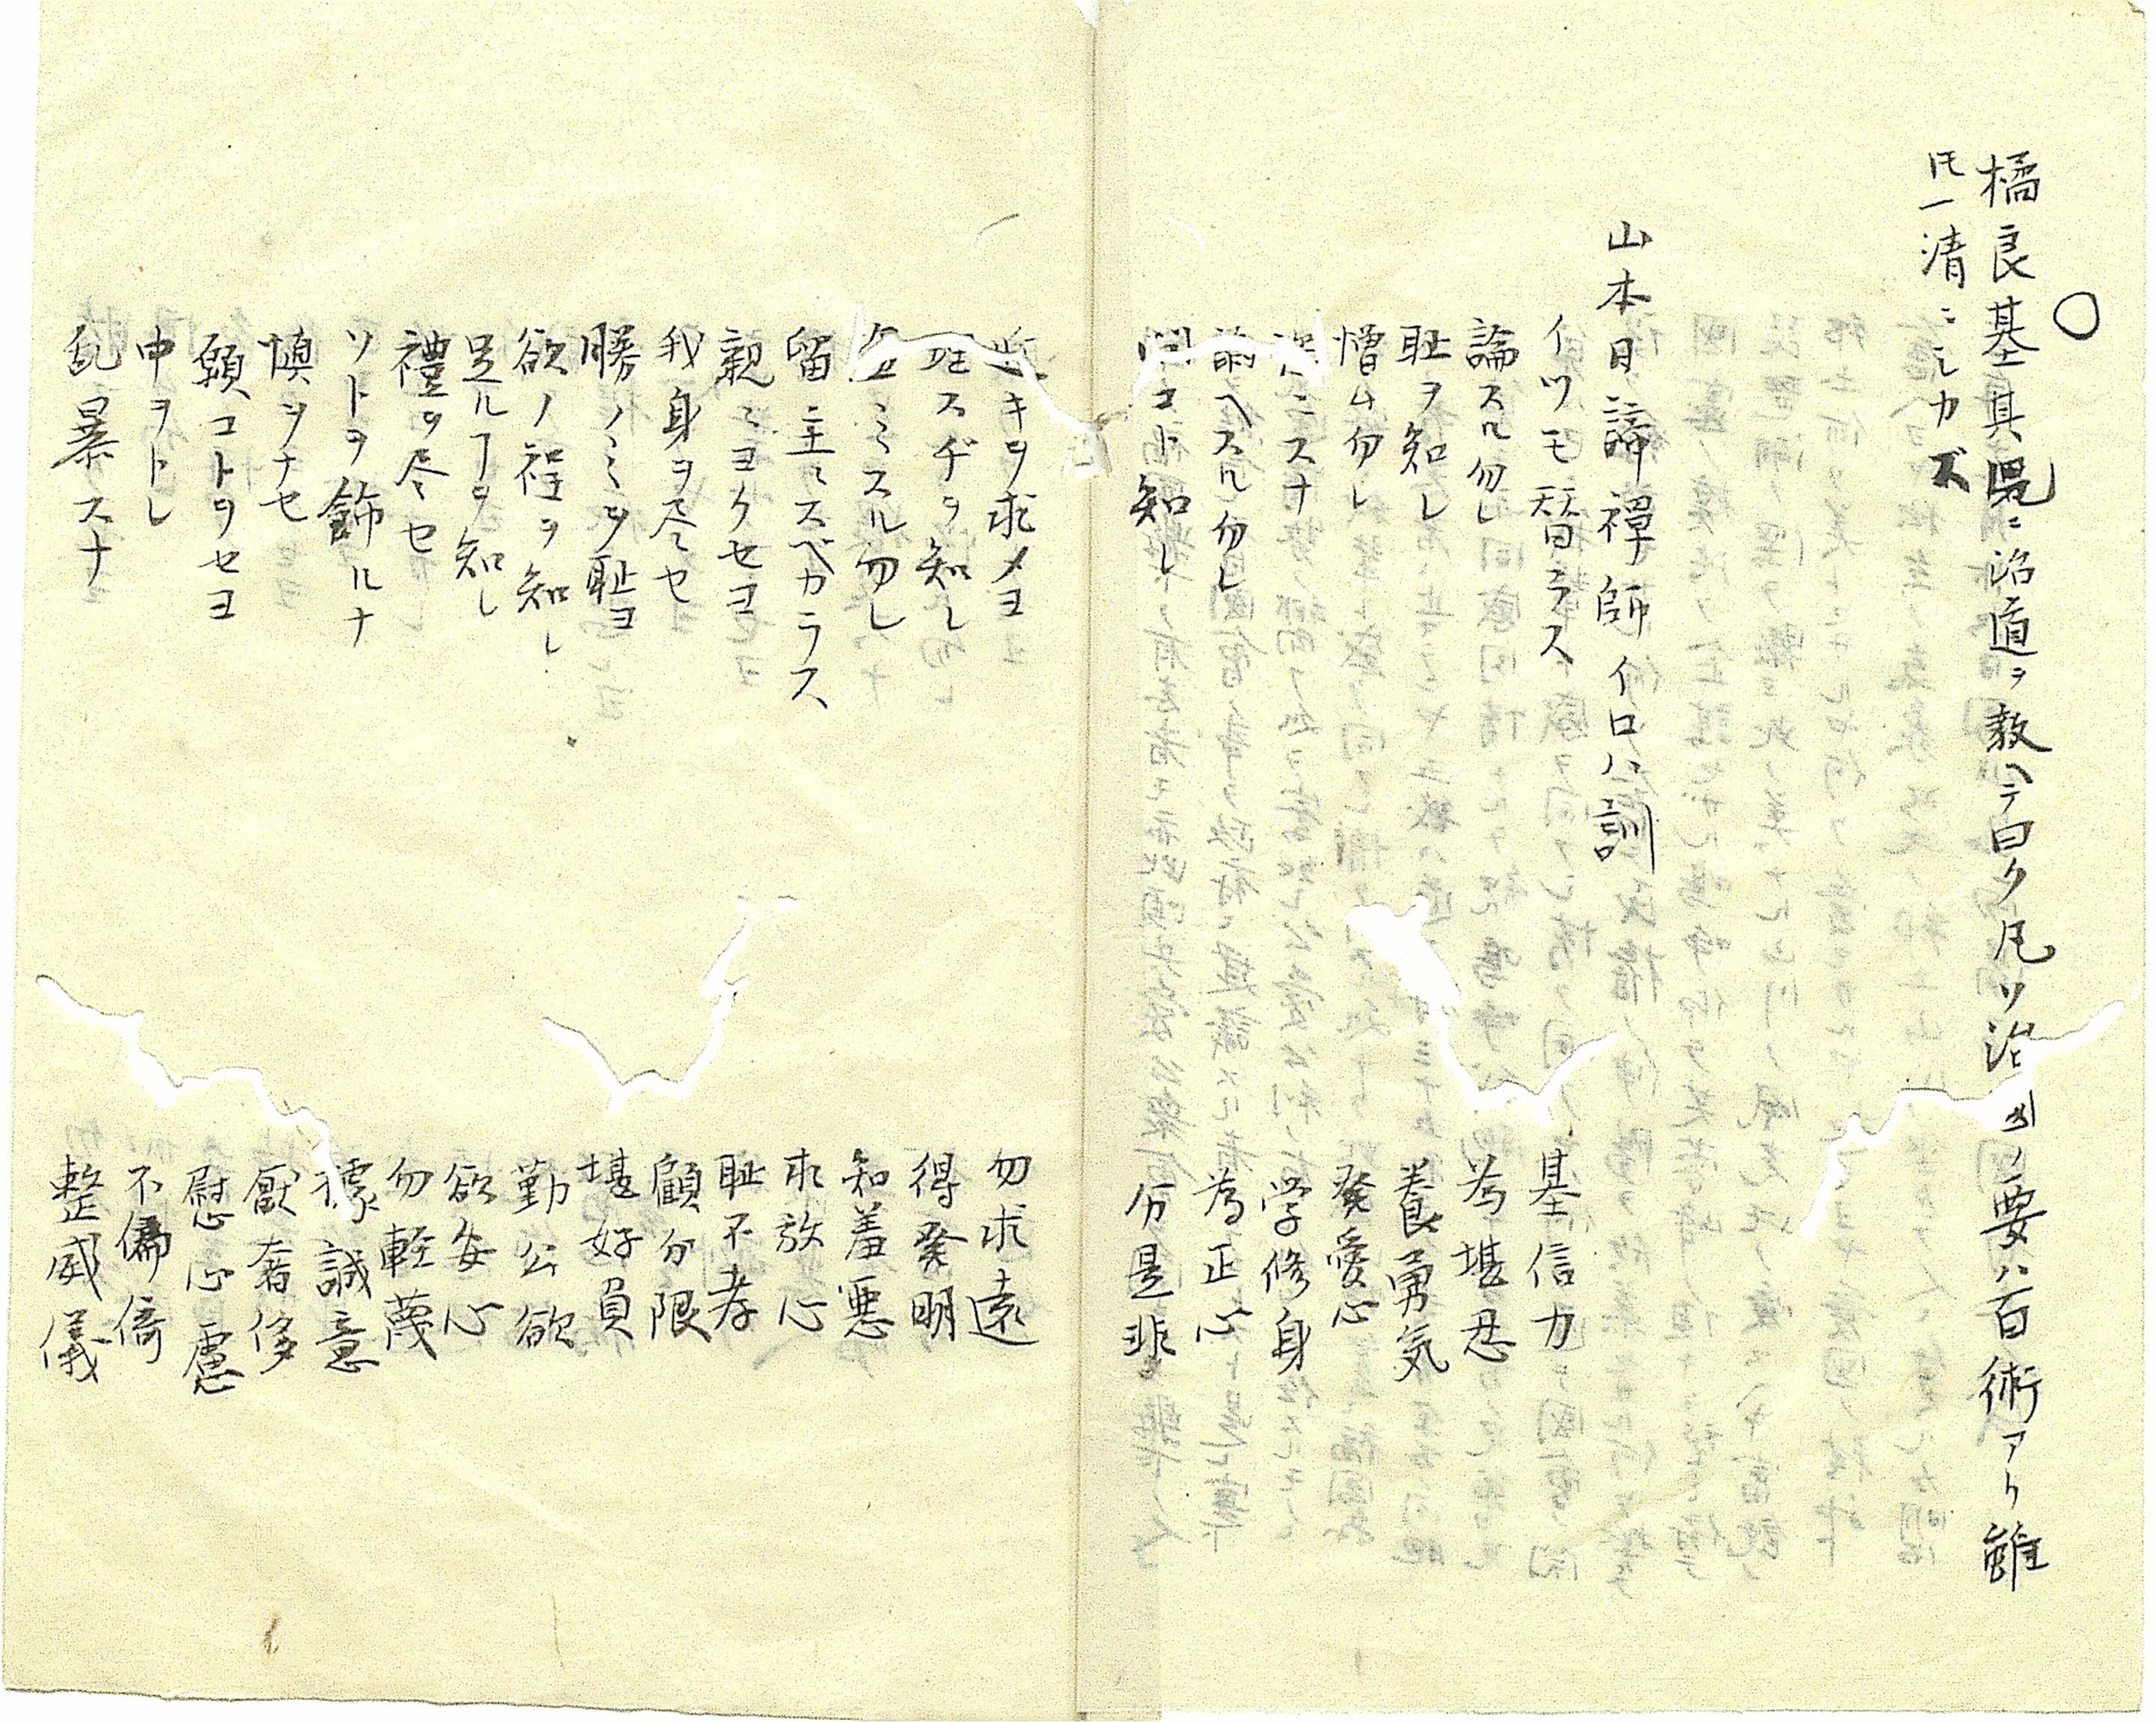 ○
橘良基其児ニ治道ヲ教ヘテ曰ク凡ソ治ノ要ハ百術アリ雖
𪜈一清ニシカズ
山本日諦禅師イロハ訓
イツモ替ラス 基信力
論スル勿レ 為堪忍
耻ヲ知レ 養勇気
憎ム勿レ 発愛心
ニスナ 学修身
諂ヘスル勿レ 為正心
コト知レ 分是非
近キヲ求メヨ 勿求遠
スヂヲ知レ 得発明
ミスル勿レ 知羞悪
留主ニスベカラス 求放心
親ニヨクセヨ 耻不孝
我身ヲ尽セ 顧分限
勝ノミヲ耻ヨ 堪好負
欲ノ程ヲ知レ 勤公欲
足ルヿヲ知レ 欲安心
禮ヲ尽セ 勿軽蔑
ソトヲ飾ルナ 据誠意
慎ヲナセ 厭奢侈
願コトヲセヨ 慰心慮
中ヲトレ 不偏倚
乱暴スナ 整威儀